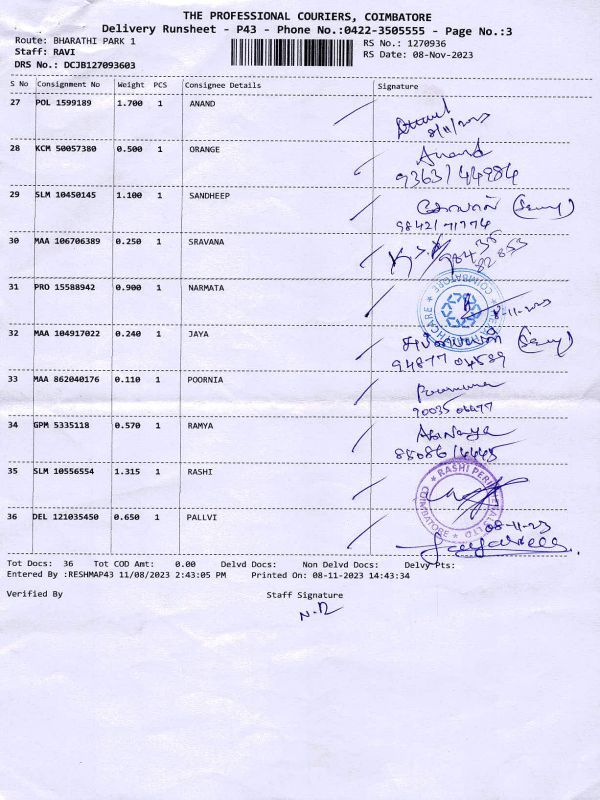 THE PROFESSIONAL COURIERS, COIMBATORE
Delivery Runsheet - P43 - Phone No.:0422-3505555 - Page No.:3
Route: BHARATHI PARK 1 RS No.: 1270936
Staff: RAVI RS Date: 08-Nov-2023
DRS No.: DCJB127093603
S No Consignment No Weight PCS Consignee Details Signature
27 POL 1599189 1.700 1 ANAND
8/11/2023
28 KCM 50057380 0.500 1 ORANGE Anand
9363144984
29 SLM 10450145 1.100 1 SANDHEEP
9842171774
30 MAA 106706389 0.250 1 SRAVANA
31 PRO 15588942 0.900 1 NARMATA COIMBATORE
8-11-2023
32 MAA 104917022 0.240 1 JAYA
94877 04589
33 MAA 862040176 0.110 1 POORNIA
34 GPM 5335118 0.570 1 RAMYA
35 SLM 10556554 1.315 1 RASHI RASHI PERIPHERALS LTD COIMBATORE
36 DEL 121035450 0.650 1 PALLVI 08-11-23
Tot Docs: 36 Tot COD Amt: 0.00 Delvd Docs: Non Delvd Docs: Delvy Pts:
Entered By :RESHMAP43 11/08/2023 2:43:05 PM Printed On: 08-11-2023 14:43:34
Verified By Staff Signature